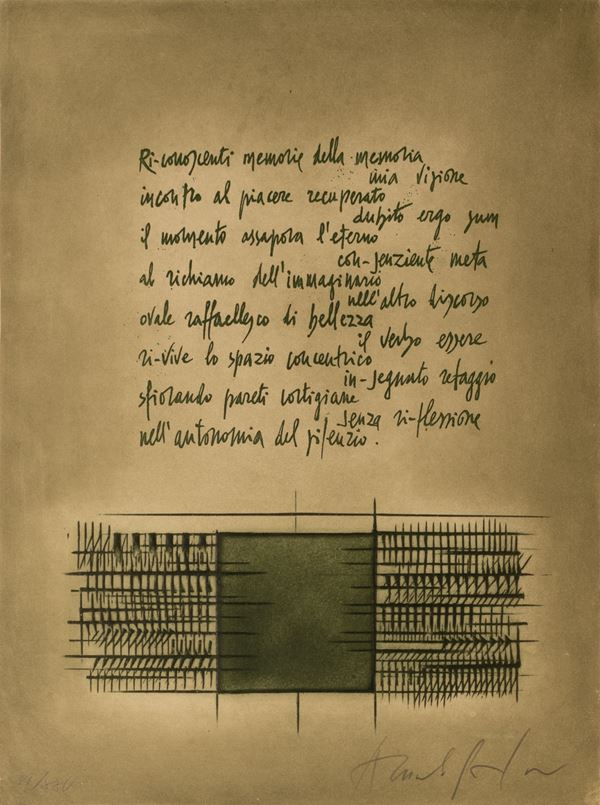 Ri-conoscenti memorie della memoria
mia visione
incontro al piacere recuperato
dubito ergo sum
il momento assapora l'eterno
con-senziente meta
al richiamo dell'immaginario
nell'altro discorso
ovale raffaellesco di bellezza
il verbo essere
ri-vive lo spazio concentrico
in-segnato retaggio
sfiorando pareti cortigiane
senza ri-flessione
nell'autonomia del silenzio.